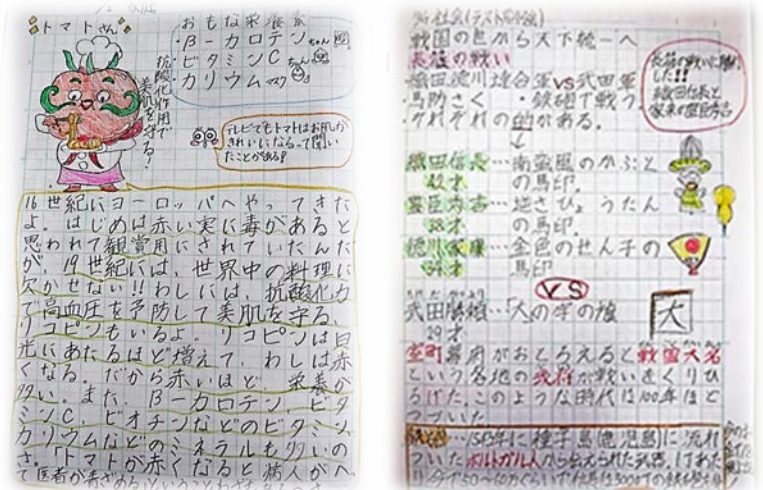 トマトさん
おもな栄養素
・β-カロテンちゃん
・ビタミンCちゃん
・カリウムマスク
抗酸化作用で
美肌を守る!
テレビでもトマトはお肌が
きれいになるって聞い
たことがある!
16世紀にヨーロッパへやってきた
よ。はじめは赤い実に毒があると
思われて観賞用にされていたんだ
が、19世紀には、世界中の料理に
欠かせない!!わしには、抗酸化力
で高血圧を予防して美肌を守る、
リコピンもいるよ。リコピンは日
光にあたるほど増えて、わしは赤
くなる。だから赤いほど、栄養が
多い。また、β-カロテン、ビタ
ミンC、ビオチンなどのビタミン、
カリウムなどのミネラルも多いの
で「トマトが赤くなると病人がへ
って医者が青ざめるということわざ
社会(テスト
戦国の世から天下統一へ
長篠の戦い
織田徳川連合軍VS武田軍
・馬防さく ・鉄砲で戦う。
・それぞれの的がある。
長篠の戦いに
した!!
織田信長と
家来の豊臣秀吉
織田信長…南蛮風のかぶと
42才 の馬印。
豊臣秀吉…逆さひょうたん
38才 の馬印。
徳川家康…金色のせん子の
34才 馬印
VS
武田勝頼…「大」の字の旗
大
29才
室町幕府がおとろえると戦国大名
という各地の武将が戦いをくりひ
ろげた。このような時代は100年ほど
つづいた
…1543年に種子島(鹿児島)に流れ
ついたポルトガル人から伝えられた武器。1丁あた
り今で50~60万くらい